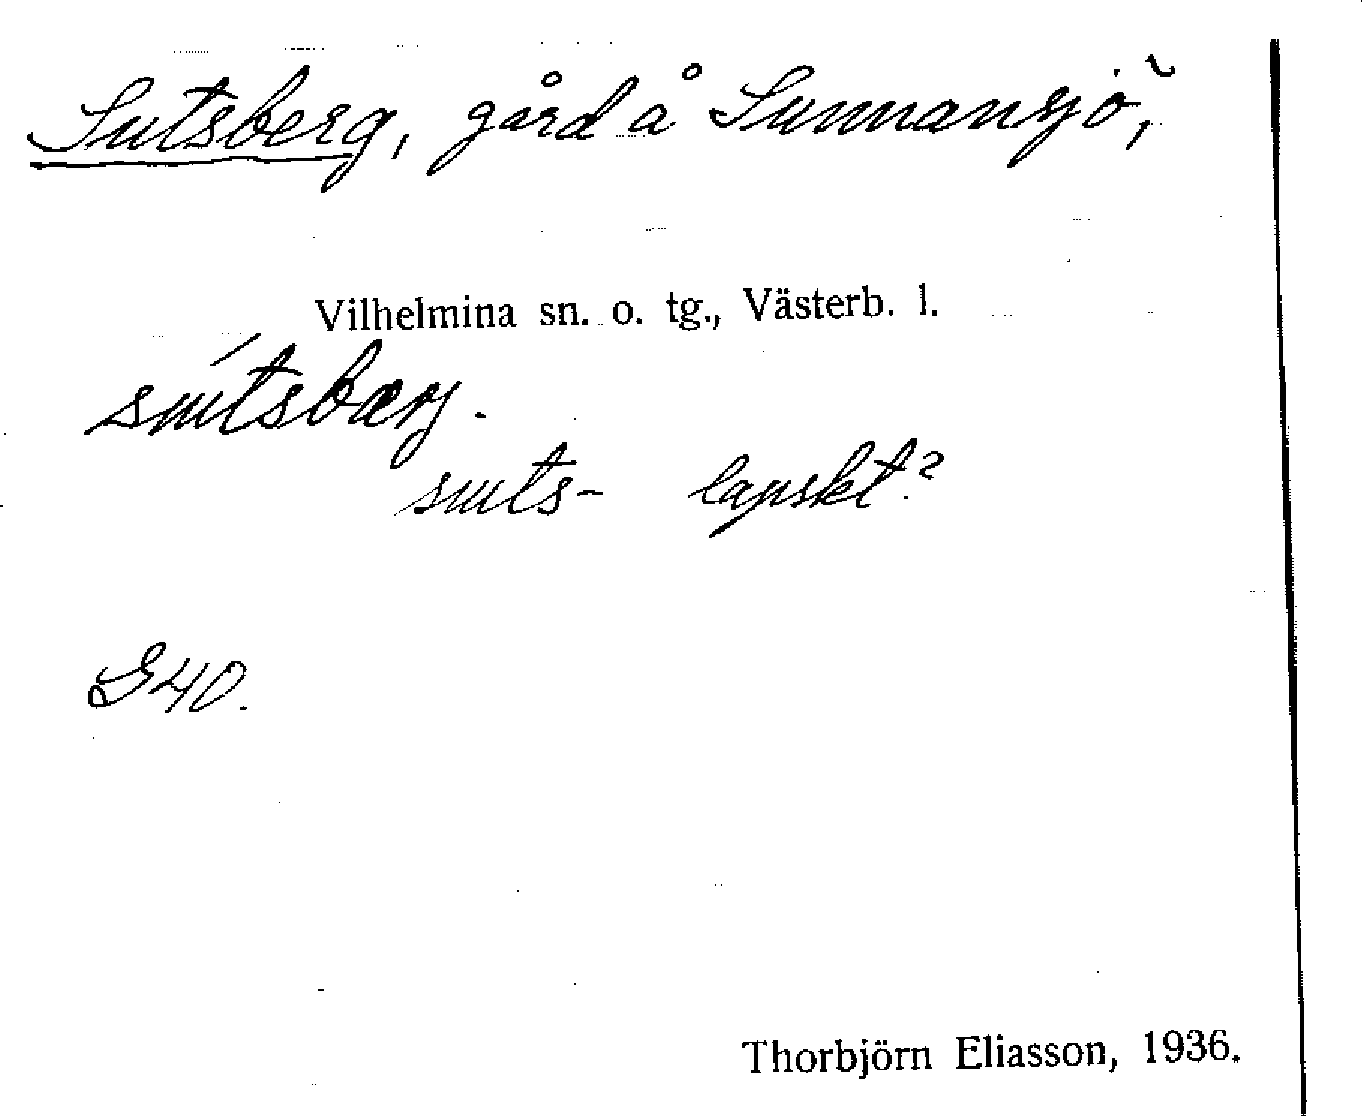 Sutsberg, gård å Sunnansjö,
Vilhelmina sn. o. tg., Västerb. l.
sutsbærj.
suts- lapskt?
G40.
Thorbjörn Eliasson, 1936.